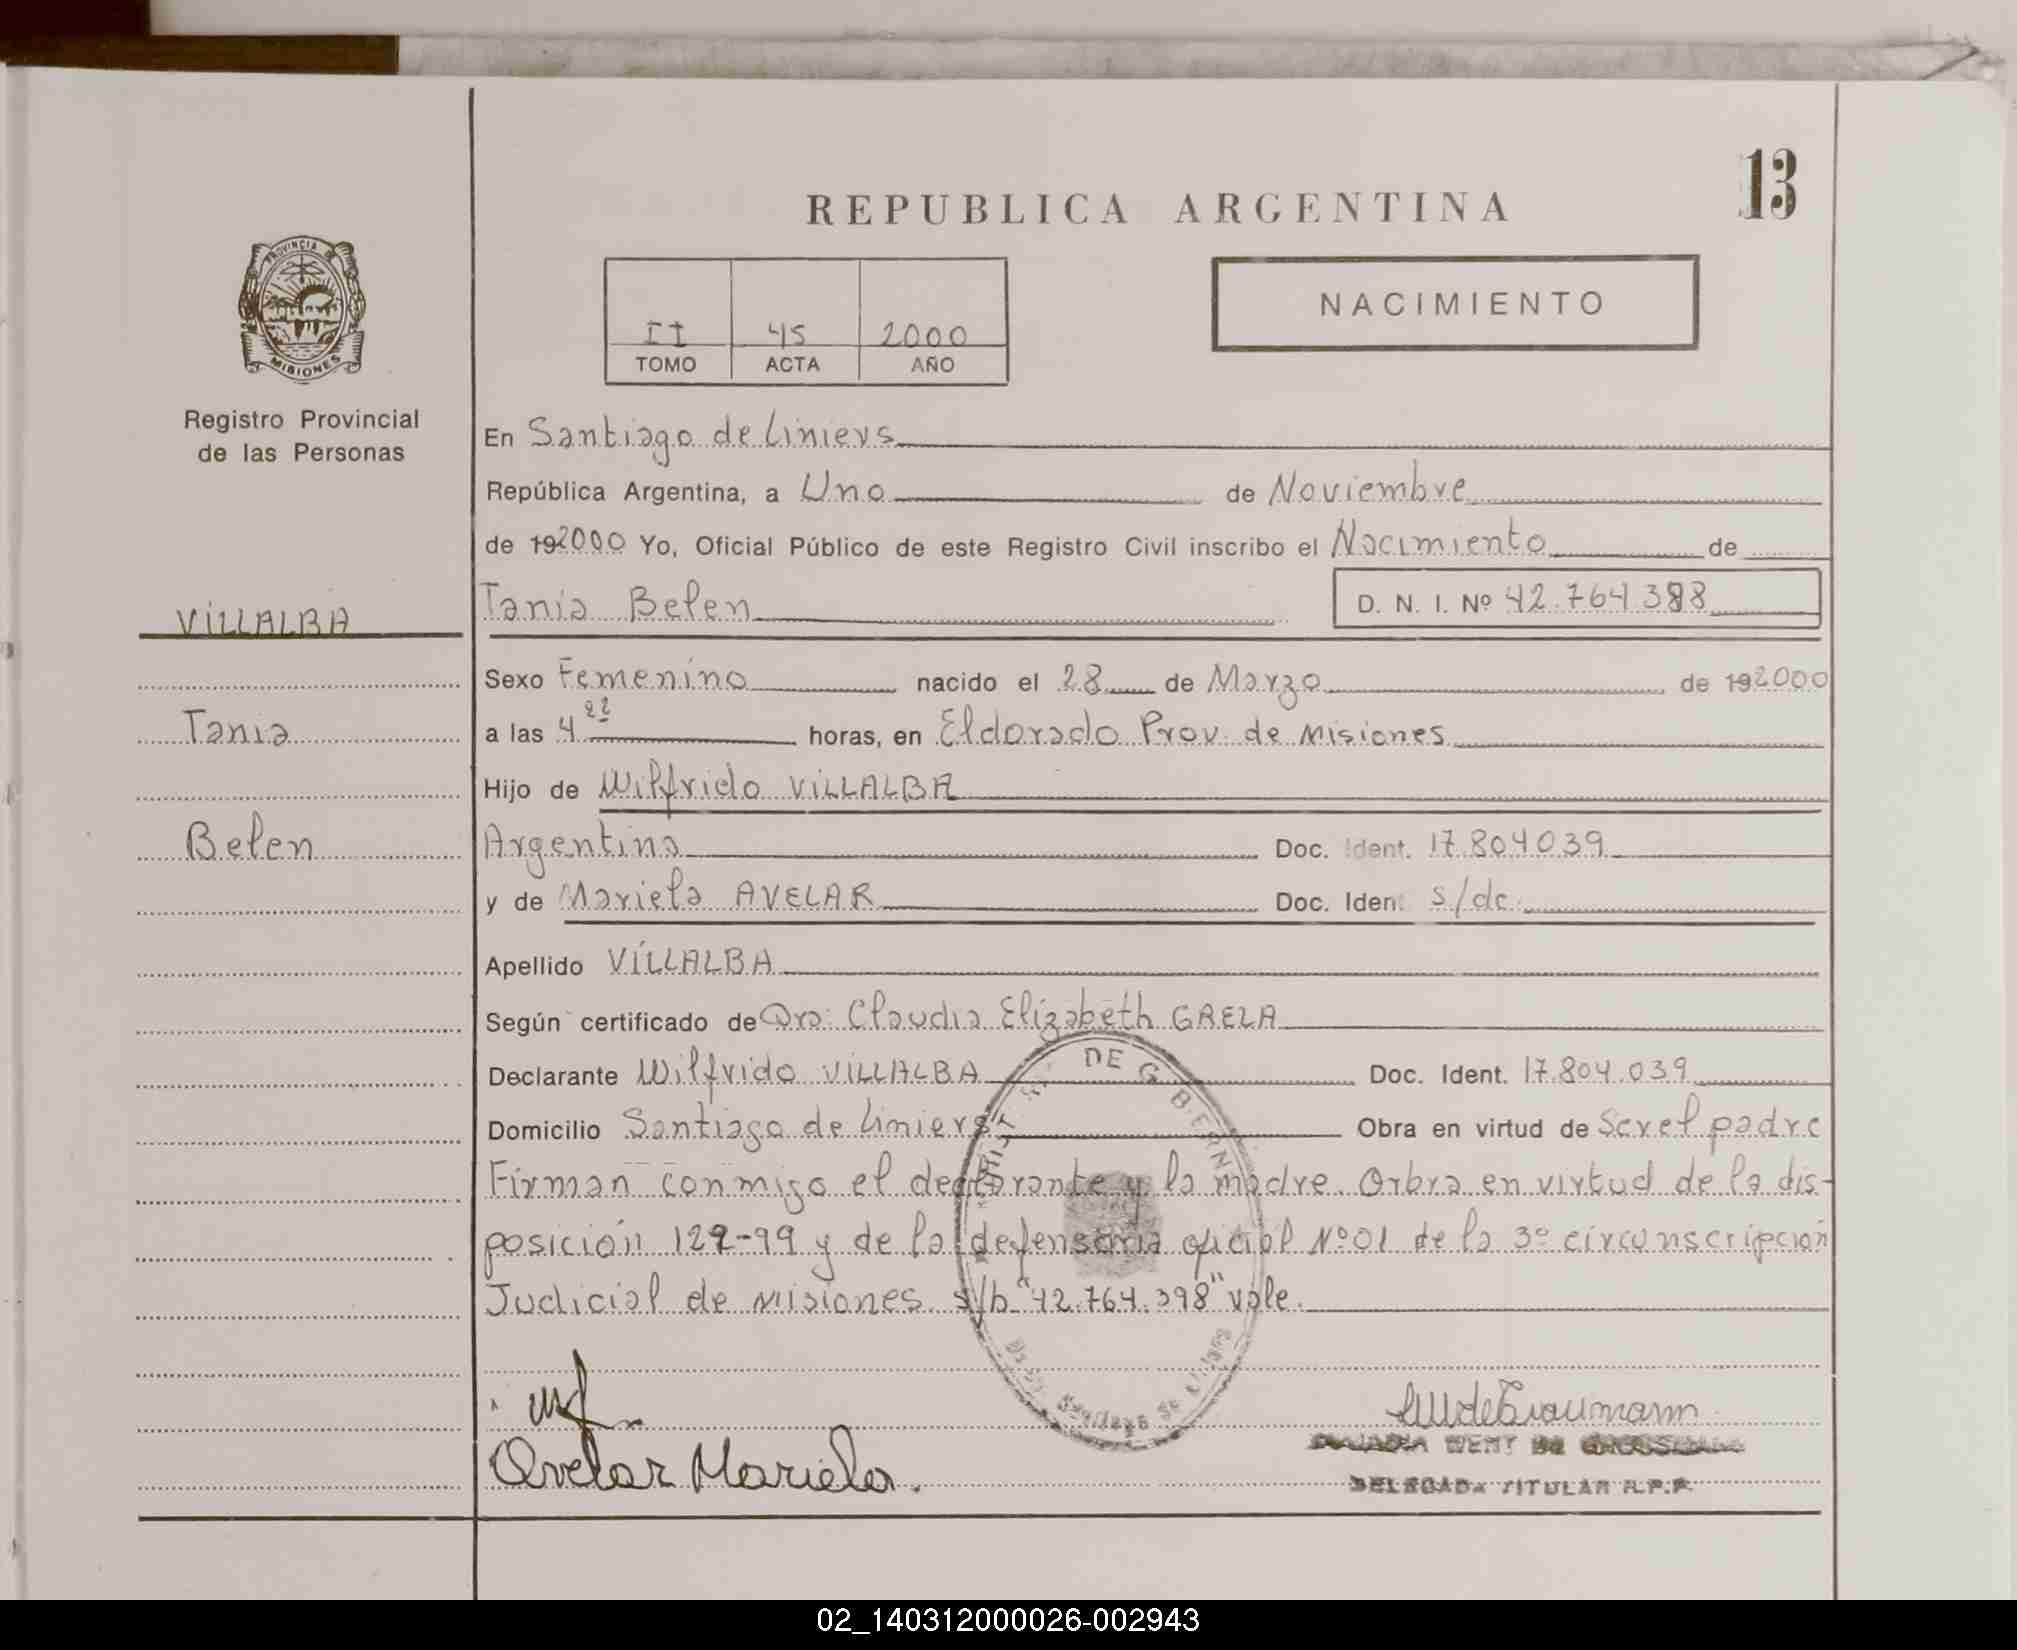 13
REPUBLICA ARGENTINA
PROVINCIA DE
MISIONES
II 45 2000
TOMO ACTA AÑO
NACIMIENTO
Registro Provincial
de las Personas
En Santiago de Liniers
República Argentina, a Uno de Noviembre
de 192000 Yo, Oficial Público de este Registro Civil inscribo el Nacimiento de
VILLALBA
Tania Belen D. N. I. Nº 42.764.388
Sexo Femenino nacido el 28 de Marzo de 192000
Tania
a las 4 horas, en Eldorado Prov. de Misiones
Hijo de Wilfrido VILLALBA
Belen
Argentina Doc. Ident. 17.804.039
y de Mariela AVELAR Doc. Ident s/dc.
Apellido VILLALBA
Según certificado de Dra: Claudia Elizabeth GRELA
Declarante Wilfrido VILLALBA Doc. Ident. 17.804.039
Domicilio Santiago de Liniers Obra en virtud de Scref padre
Firman conmigo el declarante y la madre. Orbra en virtud de la dis-
posición 122-99 y de la defensoria oficial Nº01 de la 3º circunscripción
Judicial de Misiones s/b "42.764.398" vale.
DE
Avelar Mariela.
DELEGADA TITULAR R.P.P.
02_140312000026-002943